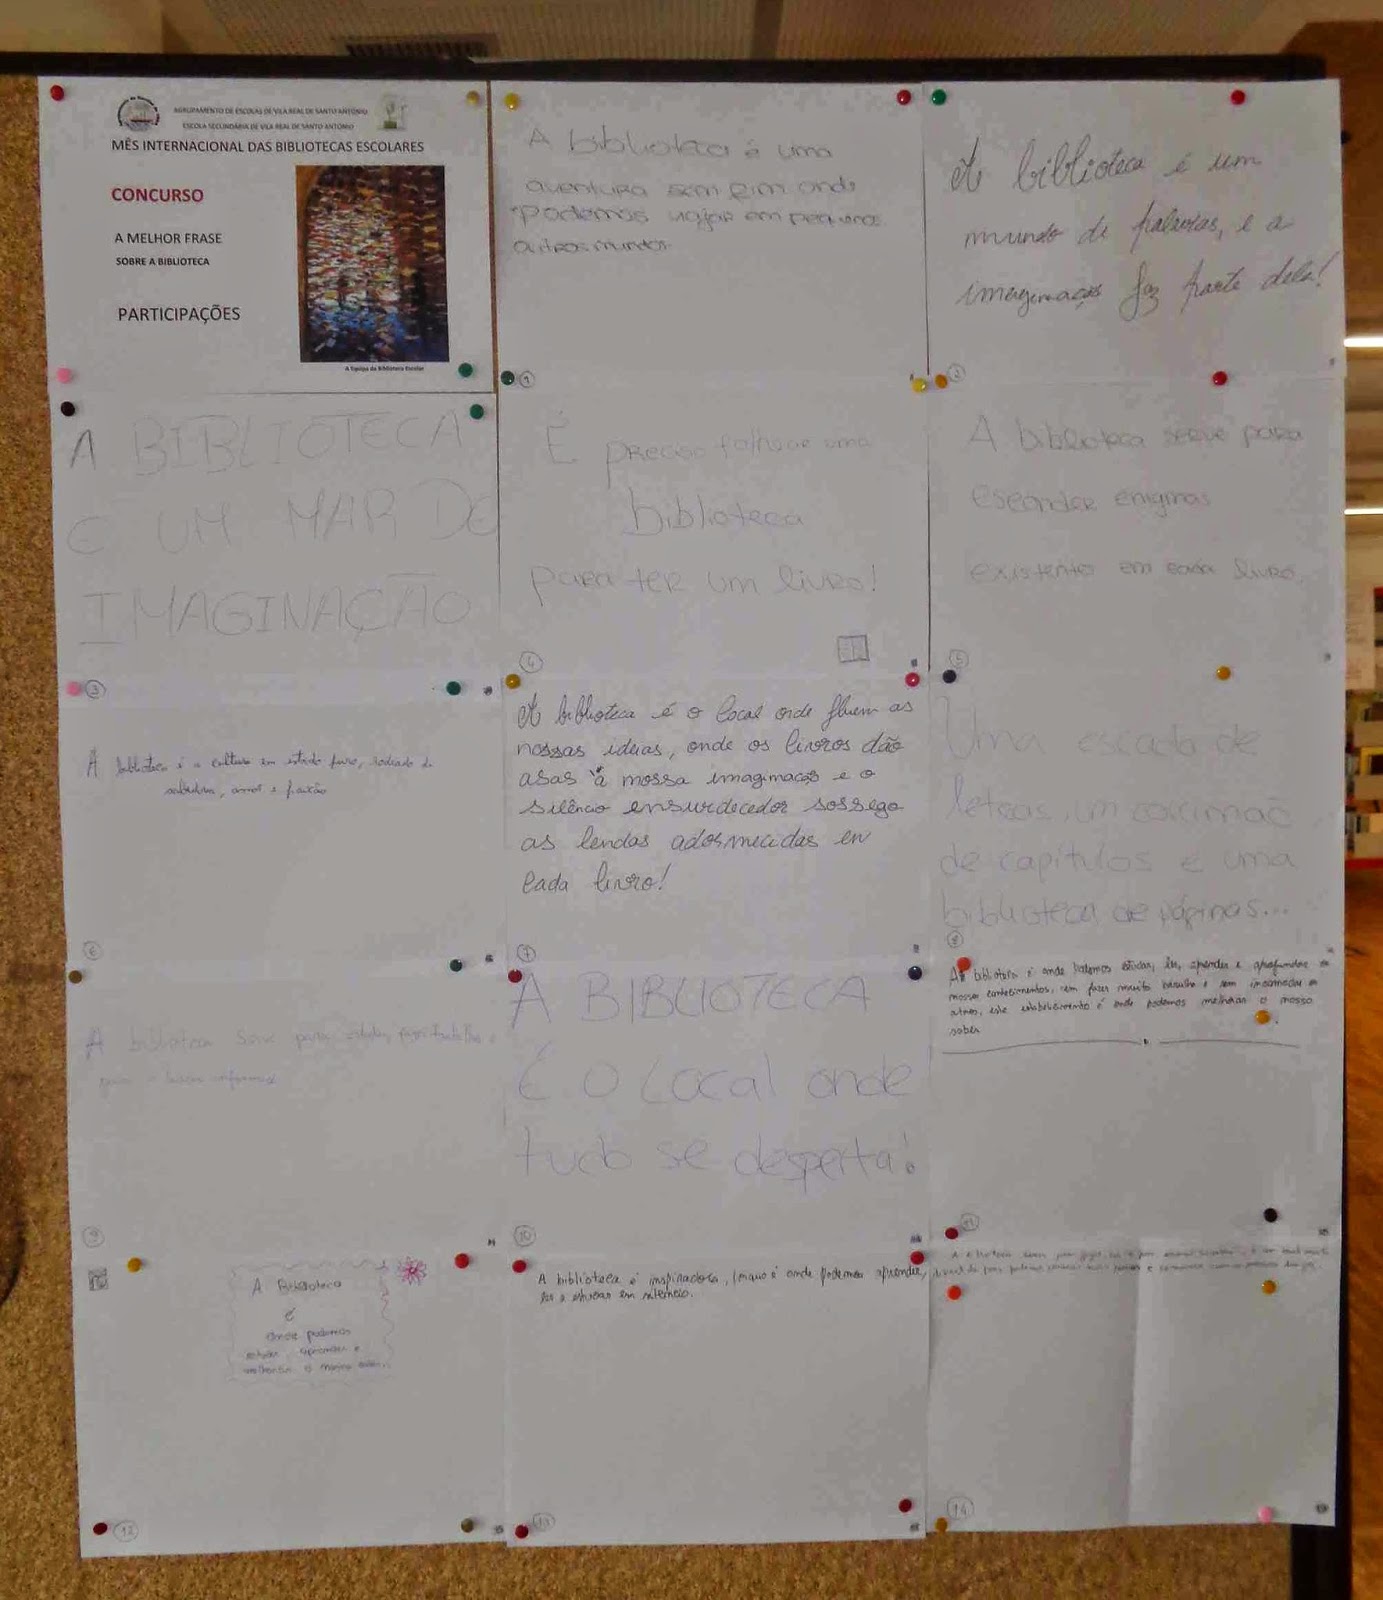 AGRUPAMENTO DE ESCOLAS DE VILA REAL DE SANTO ANTÓNIO
ESCOLA SECUNDÁRIA DE VILA REAL DE SANTO ANTÓNIO
MÊS INTERNACIONAL DAS BIBLIOTECAS ESCOLARES
CONCURSO
A MELHOR FRASE
SOBRE A BIBLIOTECA
PARTICIPAÇÕES
A Equipa da Biblioteca Escolar
A biblioteca é uma
aventura sem fim onde
podemos viajar em pequenos
outros mundos
1
A biblioteca é um
mundo de palavras, e a
imaginação faz parte dela!
2
A BIBLIOTECA
É UM MAR DE
IMAGINAÇÃO
3
É preciso folhear uma
biblioteca
para ter um livro!
4
A biblioteca serve para
esconder enigmas
existente em cada livro.
5
A biblioteca é a cultura em estado puro, rodeado de
sabedoria, amor e paixão
6
A biblioteca é o local onde fluem as
nossas ideias, onde os livros dão
asas à nossa imaginação e o
silêncio ensurdecedor sossega
as lendas adormecidas em
cada livro!
7
Uma escada de
letras, um corrimão
de capítulos e uma
biblioteca de páginas...
8
A biblioteca serve para estudar, fazer trabalhos e
para
9
A BIBLIOTECA
É O Local onde
tudo se desperta!
10
A biblioteca é onde podemos estudar, ler, aprender e aprofundar os
nossos conhecimentos, sem fazer muito barulho e sem incomodar os
outros, este estabelecimento é onde podemos melhorar o nosso
saber
11
A Biblioteca
é
onde podemos
estudar, aprender e
melhorar o nosso saber.
12
A biblioteca é inspiradora, é onde podemos aprender,
ler e estudar em silêncio.
13
A biblioteca serve para
14